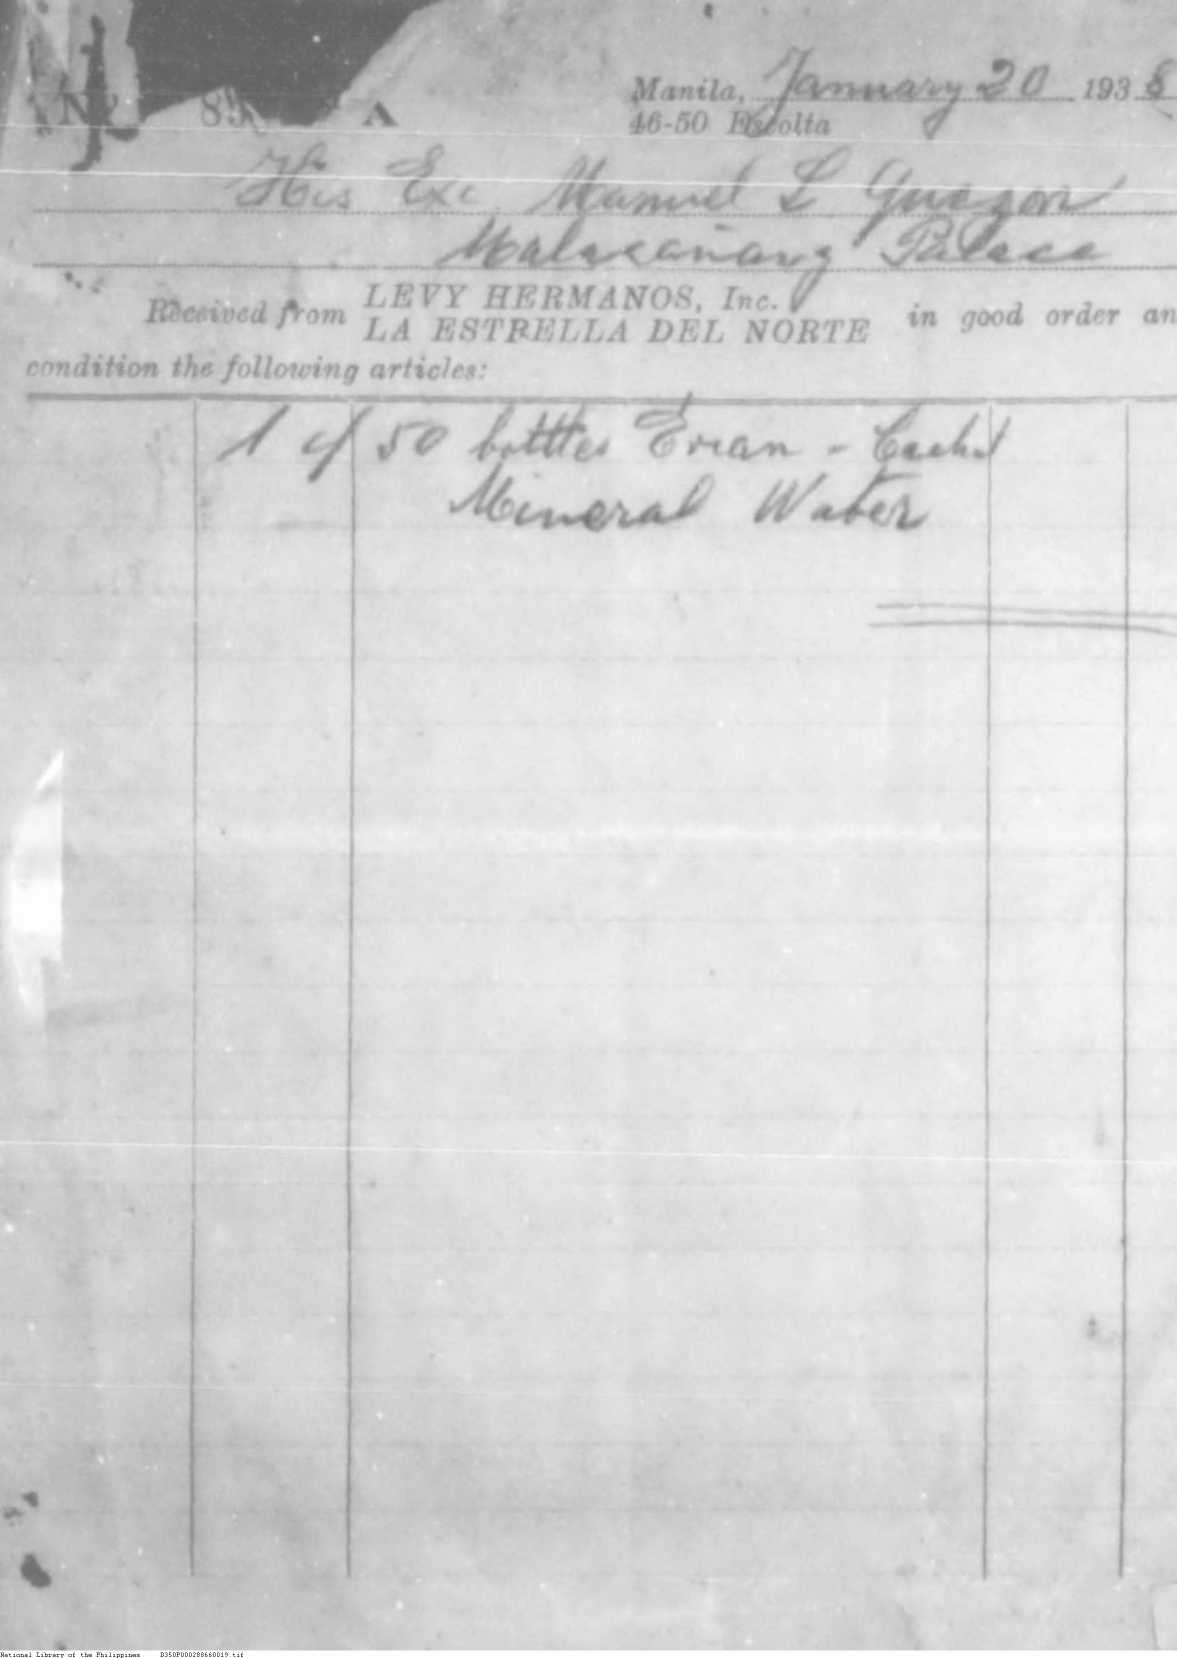 Manila, January 20 1938
46-50 Escolta
No 89 A
His Exc Manuel L Quezon
Malacañang Palace
Received from LEVY HERMANOS, Inc.
LA ESTRELLA DEL NORTE in good order an
condition the following articles:
1 c/ 50 bottles Evian - Cachat
Mineral Water
National Library of the Philippines D350P000288660019.tif